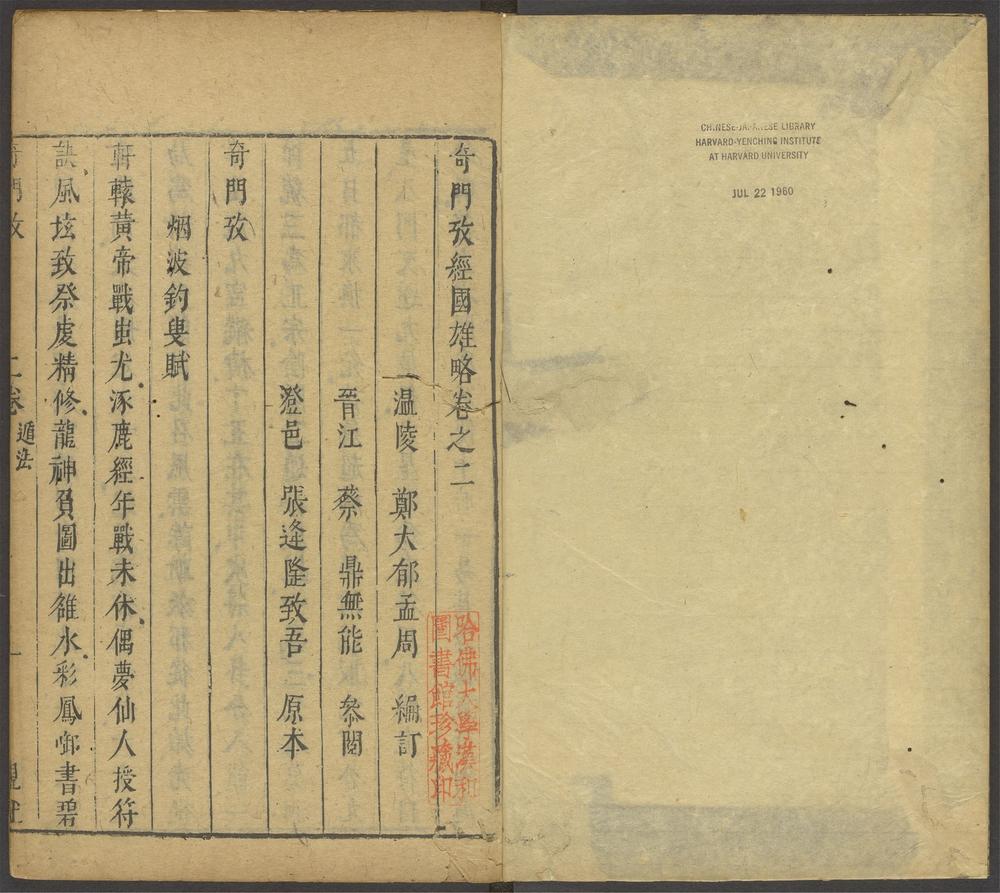 CHINESE-JAPANESE LIBRARY
HARVARD-YENCHING INSTITUTE
AT HARVARD UNIVERSITY
JUL 22 1960
奇門攷經國雄略卷之二
温陵 鄭大郁孟周 編訂
晉江 蔡 鼎無能 叅閱
澄邑 張逢隆致吾 原本
哈佛大學漢和
圖書館珍藏印
奇門攷
烟波釣叟賦
軒轅黃帝戰蚩尤涿鹿經年戰未休偶夢仙人授符
訣風坛致祭虔精修龍神負圖出雒水彩鳳啣書碧
奇門攷 二卷 遁法 一